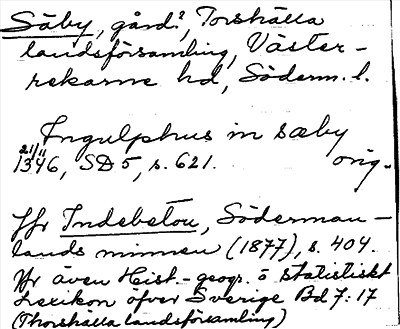 Säby, gård?, Torshälla
landsförsamling, Väster-
rekarne hd, Söderm. l.
Ingulphus in sæby
21/11 1346, SD 5, s. 621. orig.
Jfr Indebetou, Söderman-
lands minnen (1877), s. 404.
Jfr även Hist.-geogr. o statistiskt
Lexikon öfver Sverige Bd 7:17
(Thorshälla landsförsamling)